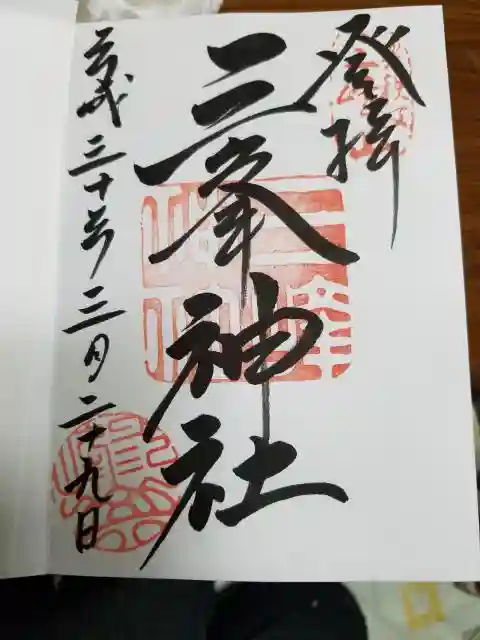 登拝
三峯神社
平成三十年三月二十九日